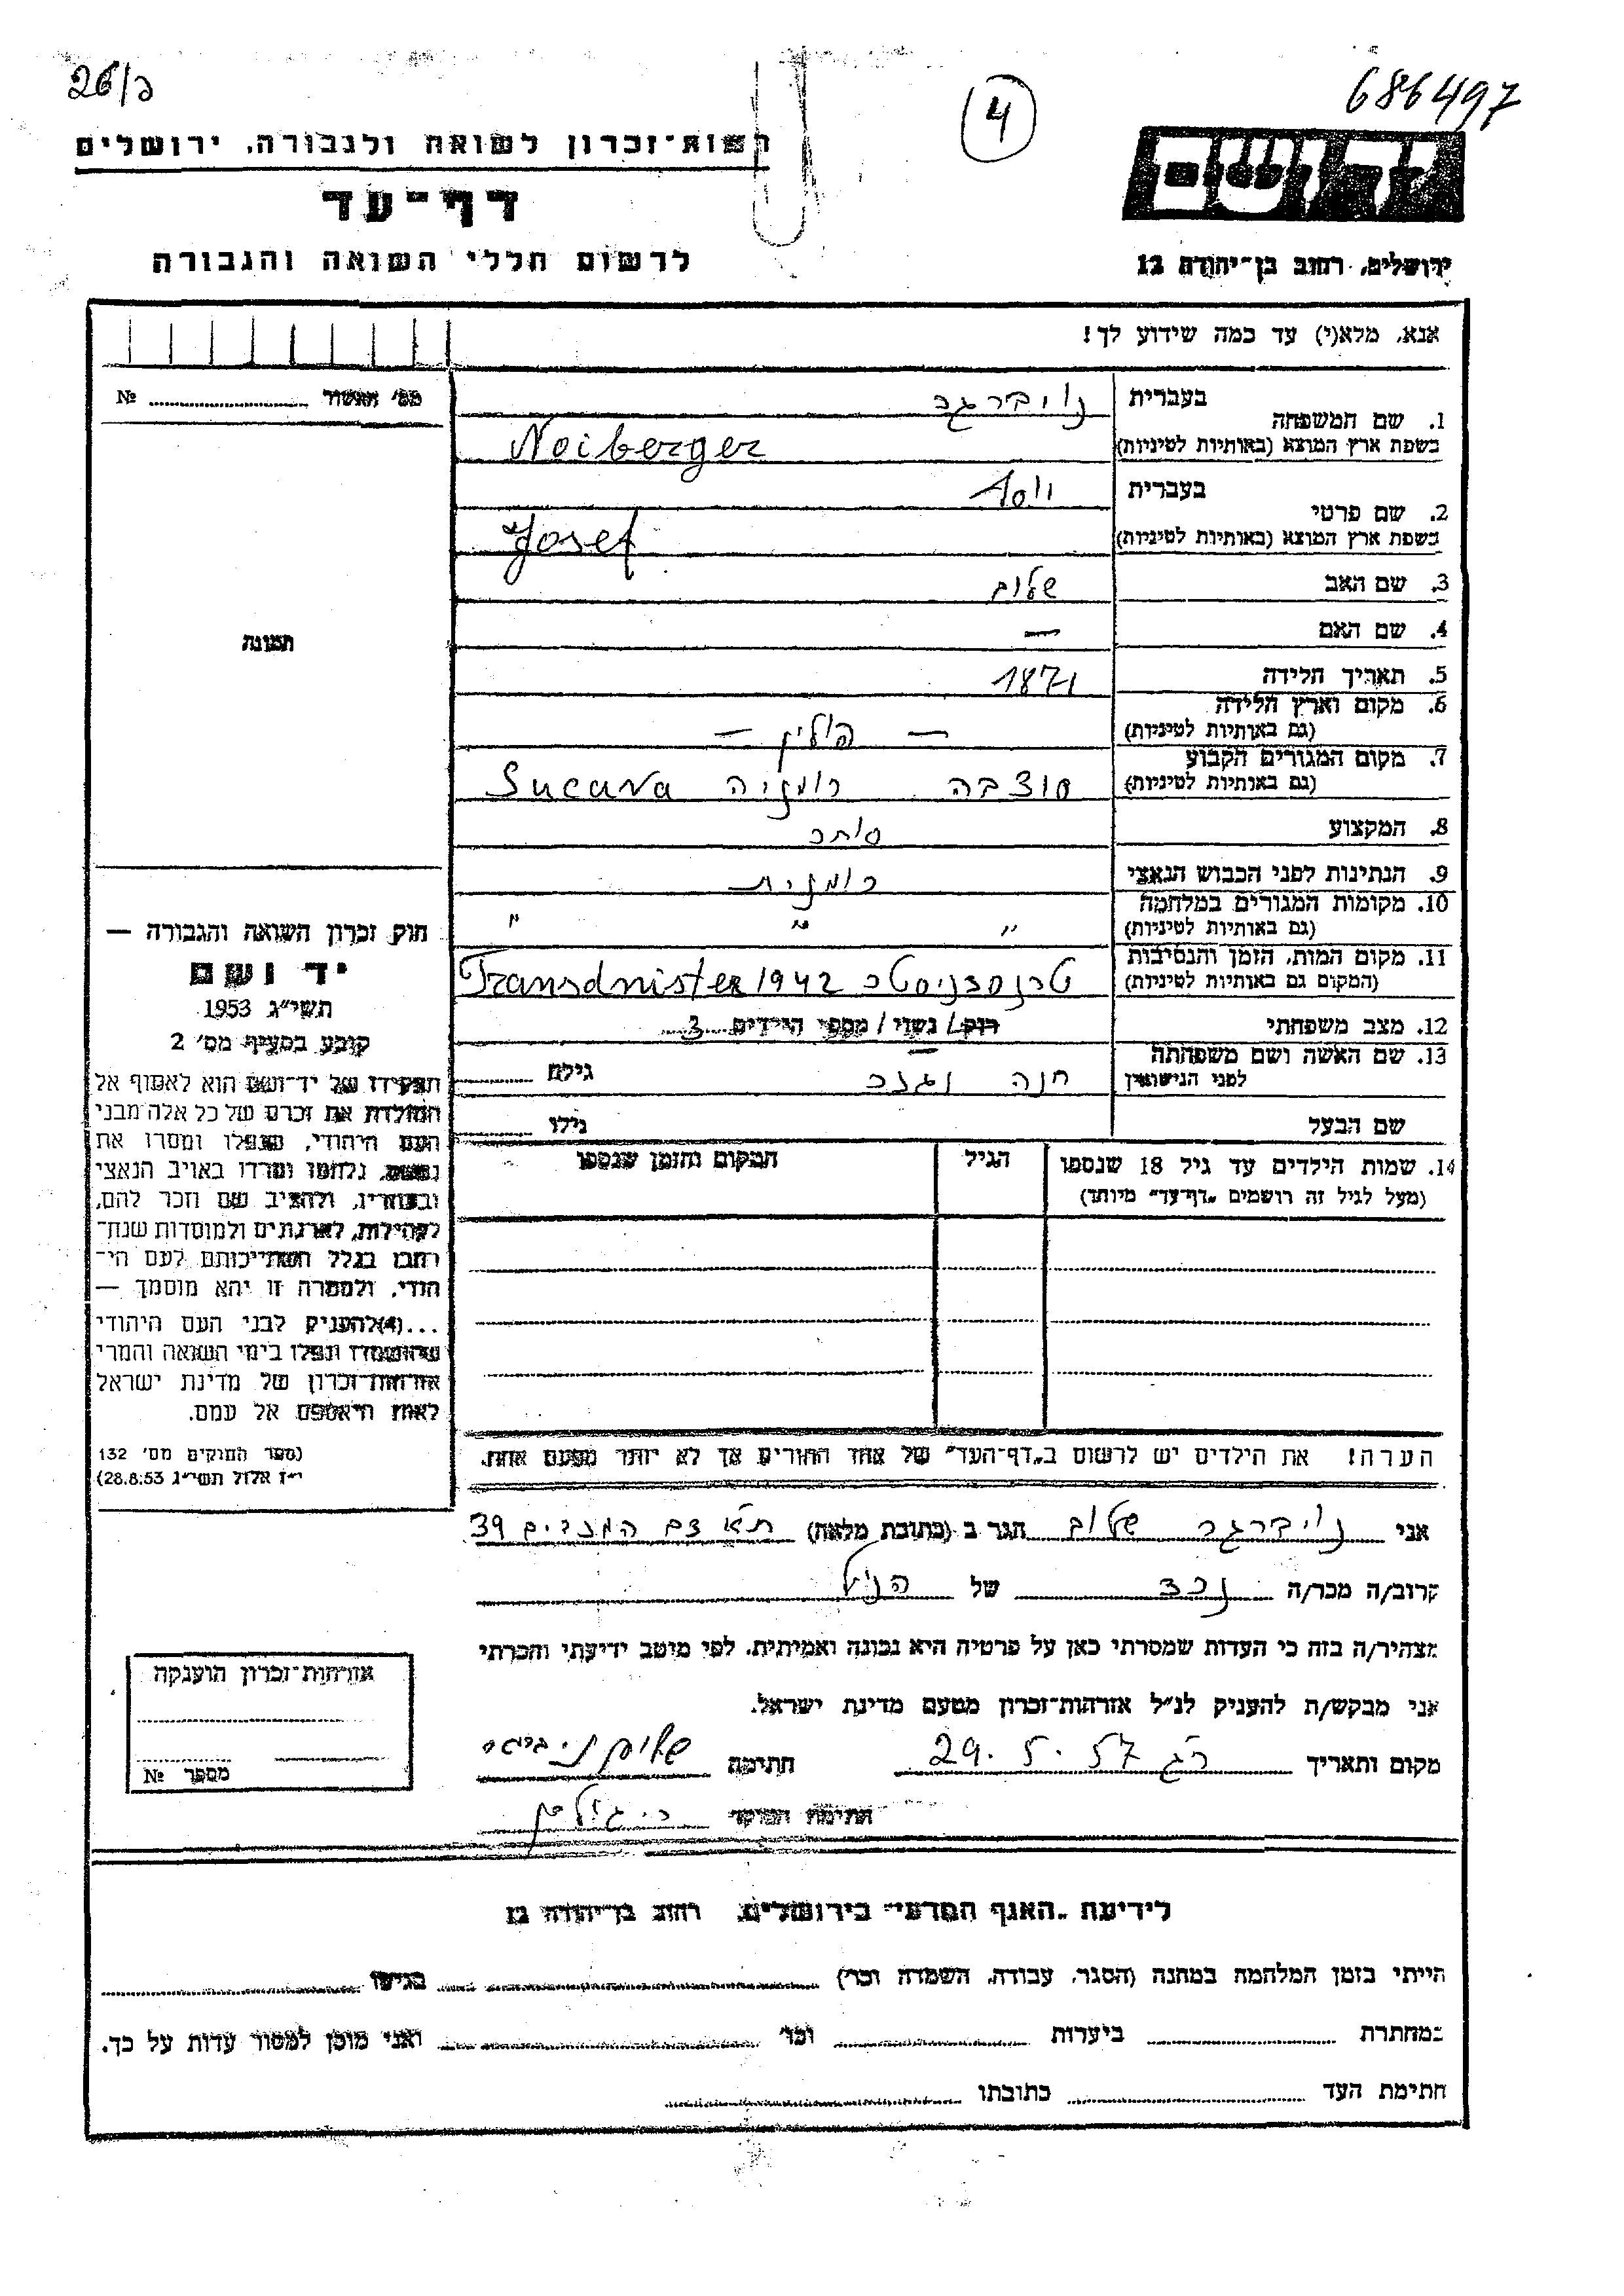 26/ב
4
686497
רשות־זכרון לשואה ולגבורה, ירושלים
יד ושם
דף־עד
לרשום חללי השואה והגבורה
ירושלים, רחוב בן־יהודה 12
אנא, מלא(י) עד כמה שידוע לך!
מס' האשור № 
1. שם המשפחה
בעברית נויברגר
בשפת ארץ המוצא (באותיות לטיניות) Noiberger
2. שם פרטי
בעברית יוסף
בשפת ארץ המוצא (באותיות לטיניות) Josef
3. שם האב שלום
4. שם האם —
5. תאריך הלידה 1871
6. מקום וארץ הלידה
(גם באותיות לטיניות) — פולין —
7. מקום המגורים הקבוע
(גם באותיות לטיניות) סוצבה רומניה Sucava
8. המקצוע סוחר
9. הנתינות לפני הכבוש הנאצי רומנית
10. מקומות המגורים במלחמה
(גם באותיות לטיניות) " " "
11. מקום המות, הזמן והנסיבות
(המקום גם באותיות לטיניות) טרנסדניסטר Transdnister 1942
12. מצב משפחתי רוק/ נשוי/ מספר הילדים 3
13. שם האשה ושם משפחתה
לפני הנישואין חנה וגנר גילה
שם הבעל גילו
14. שמות הילדים עד גיל 18 שנספו
(מעל לגיל זה רושמים „דף־עד" מיוחד)
הגיל
המקום והזמן שנספו
תמונה
חוק זכרון השואה והגבורה —
יד ושם
תשי"ג 1953
קובע בסעיף מס' 2
תפקידו של יד־ושם הוא לאסוף אל
המולדת את זכרם של כל אלה מבני
העם היהודי, שנפלו ומסרו את
נפשם, נלחמו ומרדו באויב הנאצי
ובעוזריו, ולהציב שם וזכר להם,
לקהילות, לארגונים ולמוסדות שנח־
רבו בגלל השתייכותם לעם הי־
הודי, ולמטרה זו יהא מוסמך —
...(4)להעניק לבני העם היהודי
שהושמדו ונפלו בימי השואה והמרי
אזרחות־זכרון של מדינת ישראל
לאות היאספם אל עמם.
(ספר החוקים מס' 132
י"ז אלול תשי"ג 28.8.53)
הערה! את הילדים יש לרשום ב„דף־העד" של אחד ההורים אך לא יותר מפעם אחת.
אני נויברגר שלום הגר ב (כתובת מלאה) ת"א 39
קרוב/ה מכר/ה נכד של הנ"ל
מצהיר/ה בזה כי העדות שמסרתי כאן על פרטיה היא נכונה ואמיתית, לפי מיטב ידיעתי והכרתי
אני מבקש/ת להעניק לנ"ל אזרחות־זכרון מטעם מדינת ישראל.
מקום ותאריך ר"ג 29.5.57 חתימה
חתימת הפוקד
אזרחות־זכרון הוענקה
מספר №
לידיעת „האגף המדעי" בירושלים, רחוב בן־יהודה 12
הייתי בזמן המלחמה במחנה (הסגר, עבודה, השמדה וכו') בגיטו
במחתרת ביערות וכו' ואני מוכן למסור עדות על כך.
חתימת העד כתובתו